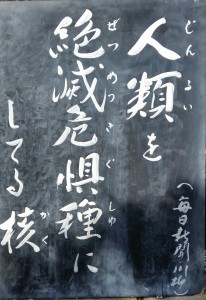 じんるい
人類を
ぜつめつきぐしゅ
絶滅危惧種に
かく
してる核
(毎日新聞川柳